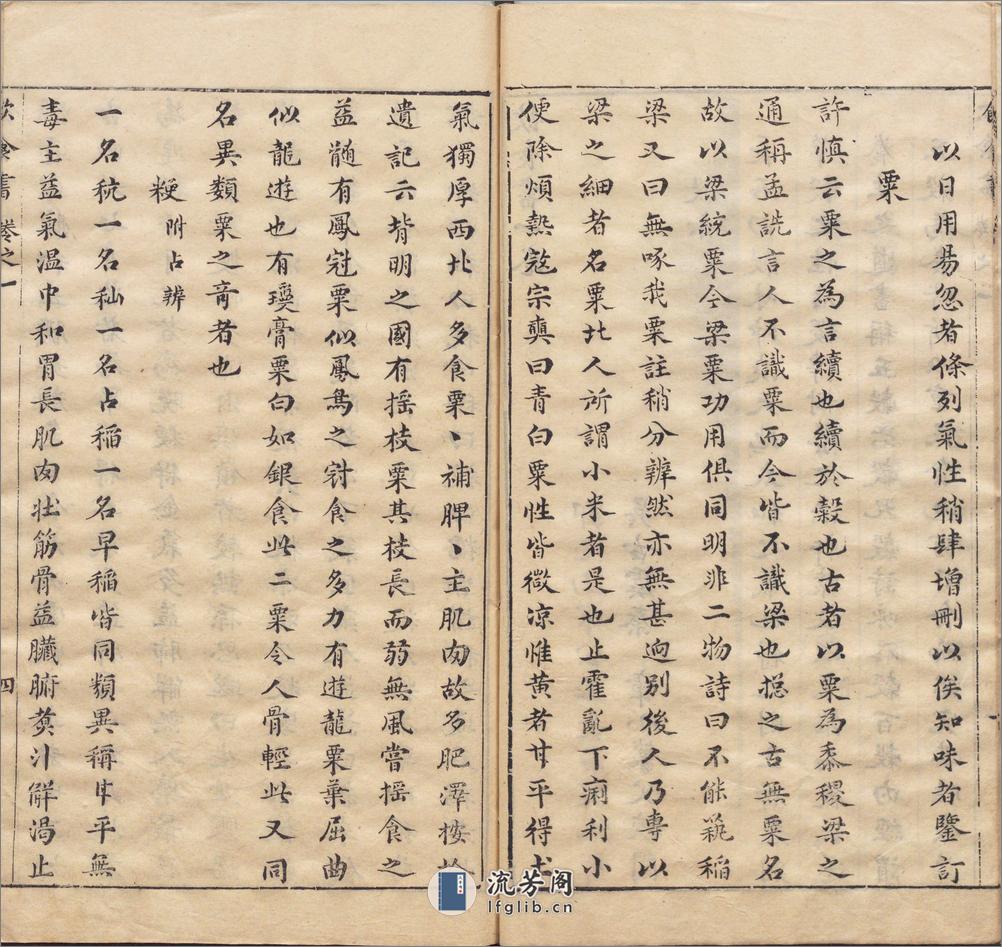 以日用易忽者條列氣性稍肆增刪以俟知味者鑒訂
粟
許慎云粟之為言續也續於穀也古者以粟為黍稷梁之
通稱孟詵言人不識粟而今皆不識梁也揔之古無粟名
故以梁統粟今梁粟功用俱同明非二物詩曰不能蓺稲
梁又曰無啄我粟註稍分辨然亦無甚逈別後人乃專以
梁之細者名粟北人所謂小米者是也止霍亂下痢利小
便除煩熱㓂宗奭曰青白粟性皆微凉惟黄者甘平得土
氣獨厚西北人多食粟丶補脾丶主肌肉故多肥澤按拾
遺記云背明之國有揺枝粟其枝長而弱無風嘗揺食之
益髓有鳳冠粟似鳳鳥之冠食之多力有遊龍粟葉屈曲
似龍遊也有瓊膏粟白如銀食此二粟令人骨輕此又同
名異類粟之竒者也
粳 附占辨
一名秔一名秈一名占稲一名早稲皆同類異稱甘平無
毒主益氣温中和胃長肌肉壮筋骨益臟腑煑汁解渴止
飲食書 卷之一 四
流芳阁
lfglib.cn